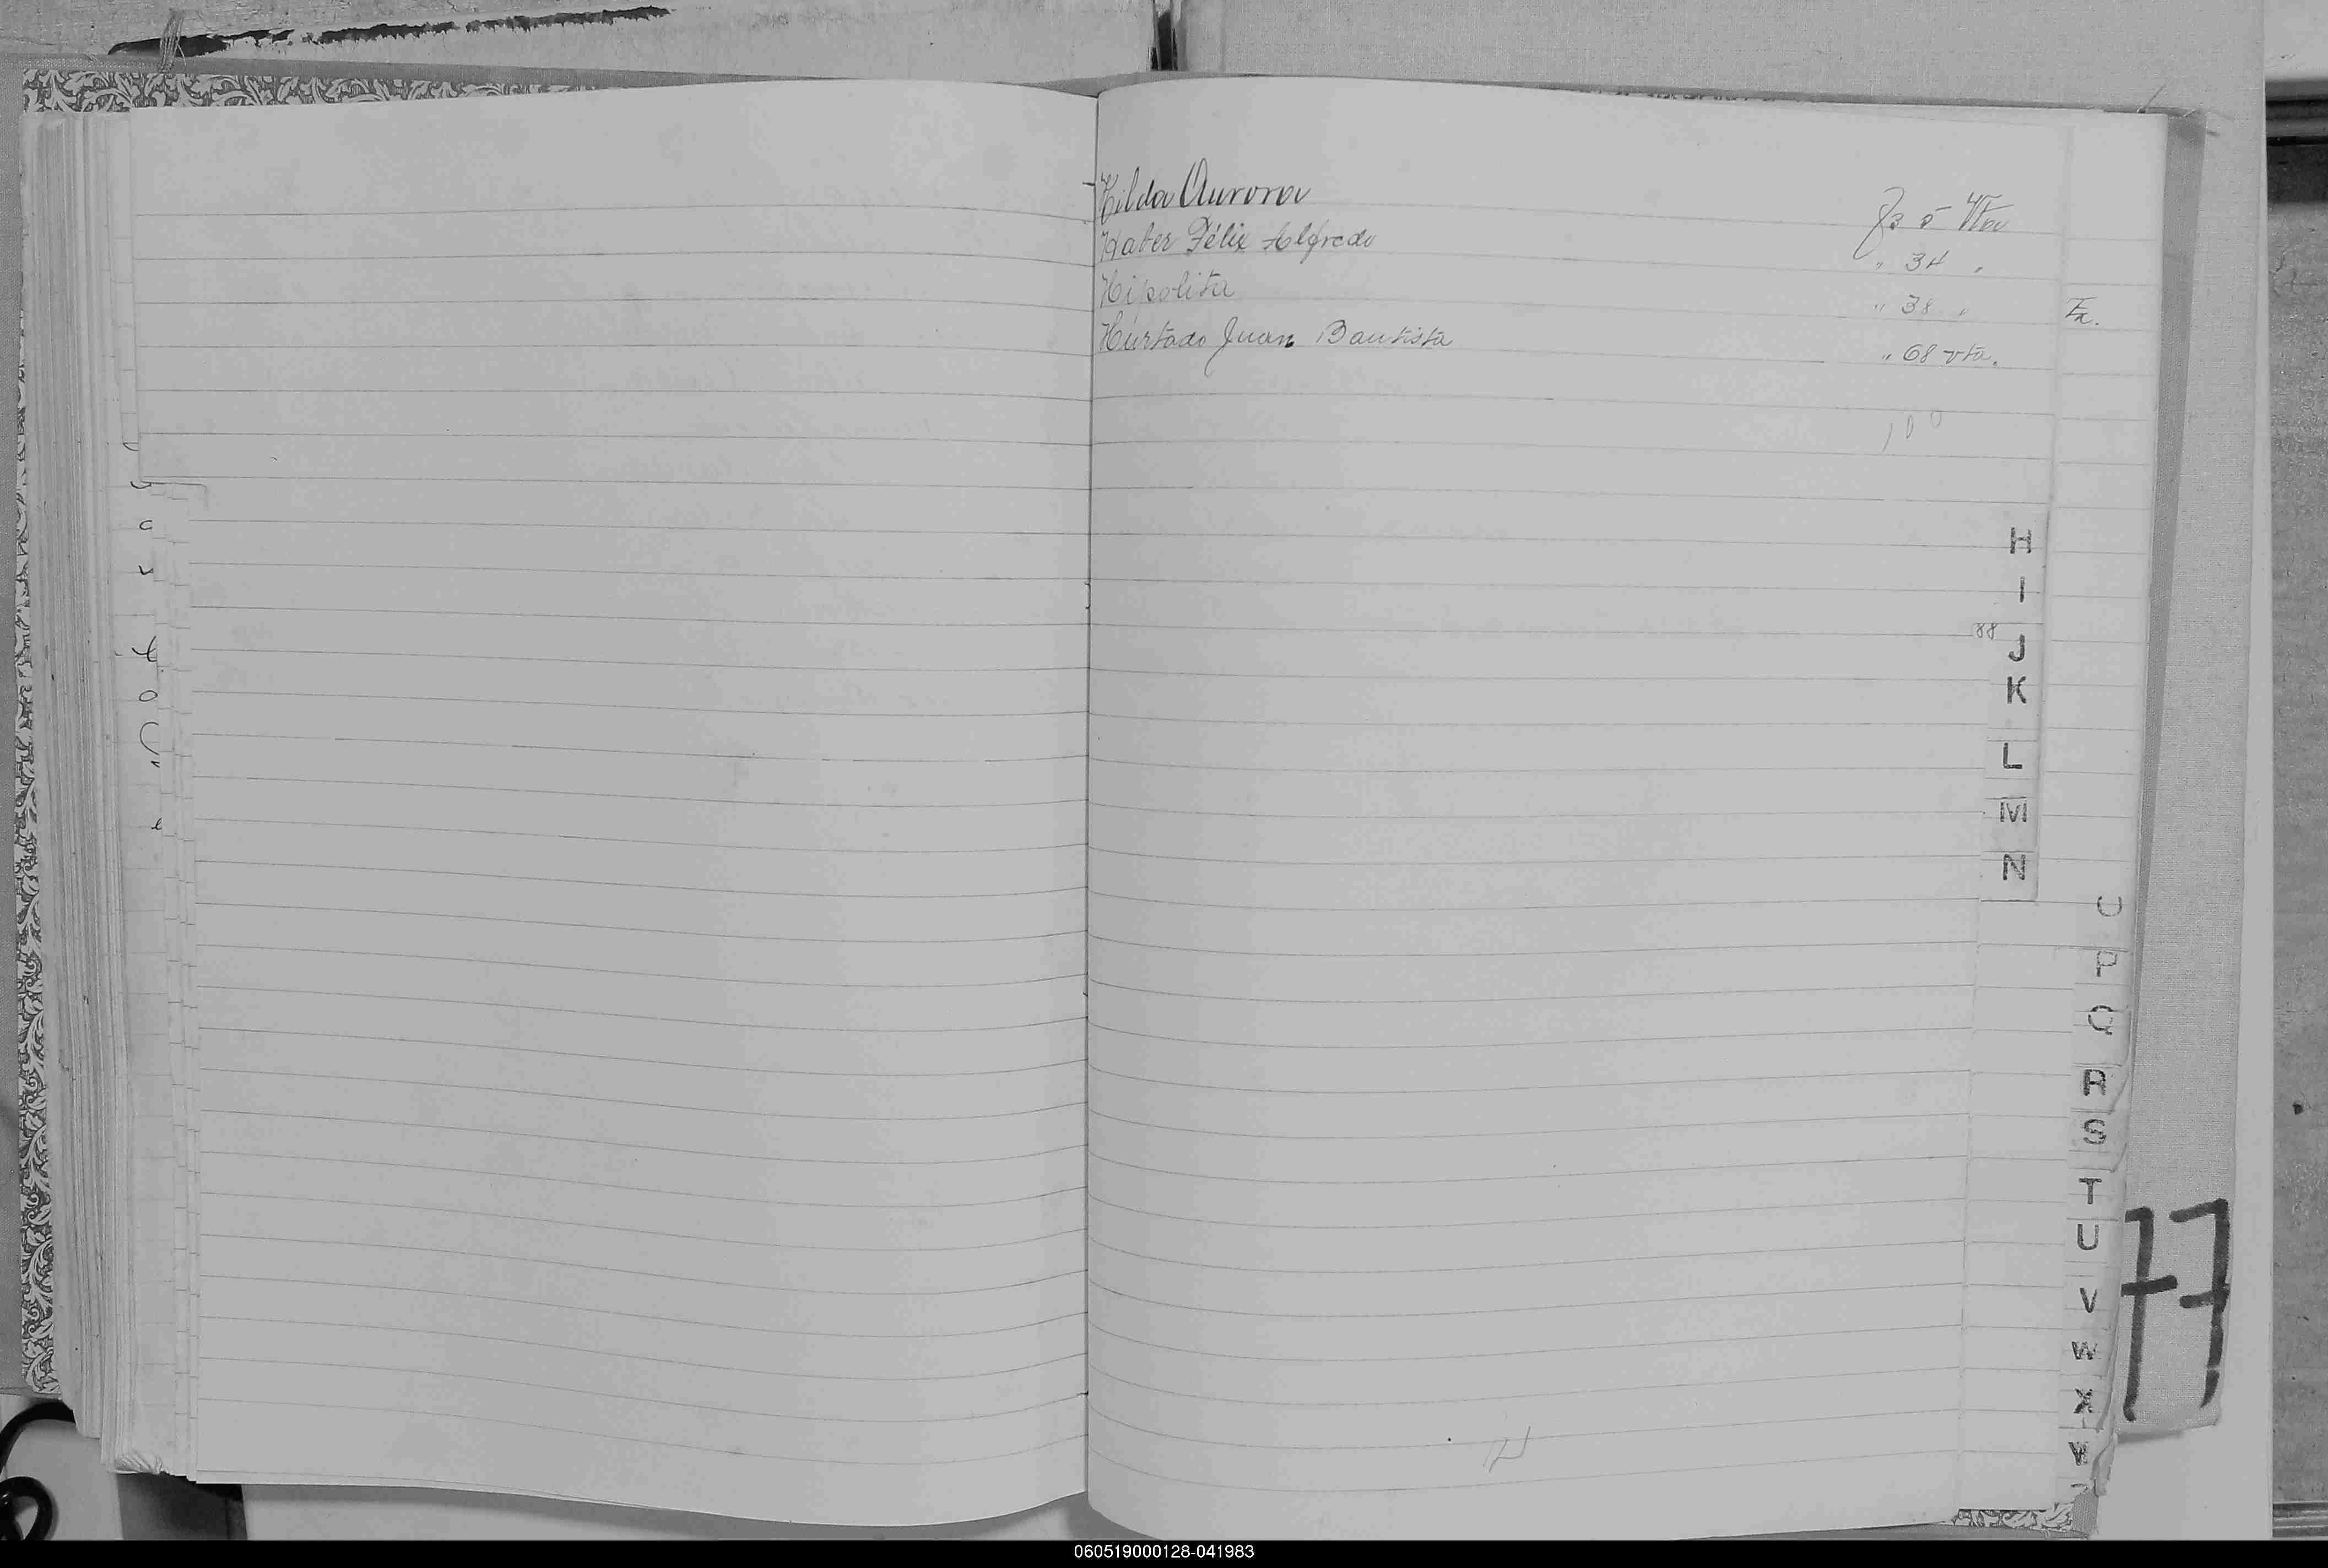 Hilda Aurora Fs 5 Vta
Haber Félix Alfredo " 34 "
Hipolita " 38 "
Hurtado Juan Bautista " 68 vta.
100
H
I
88 J
K
L
M
N
P
Q
R
S
T
U
V
W
X
Y
77
H
060519000128-041983